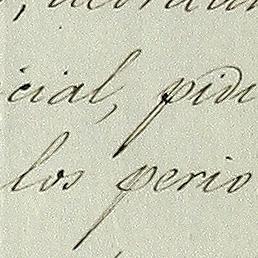 cial, pidi
los perio